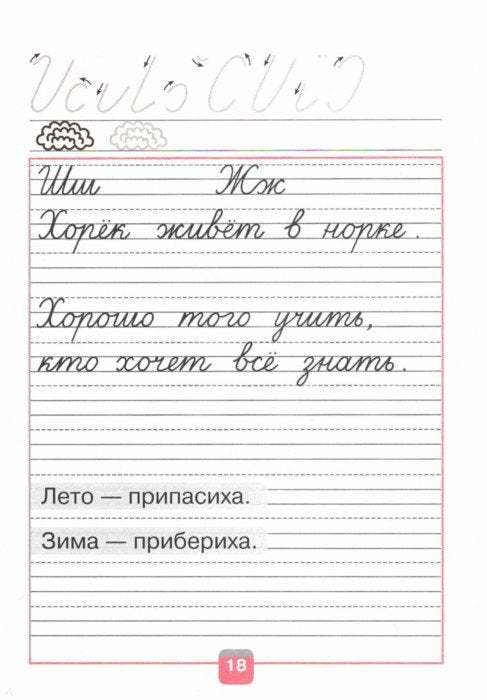 Шш Жж
Хорёк живёт в норке.
Хорошо того учить,
кто хочет всё знать.
Лето — припасиха.
Зима — прибериха.
18